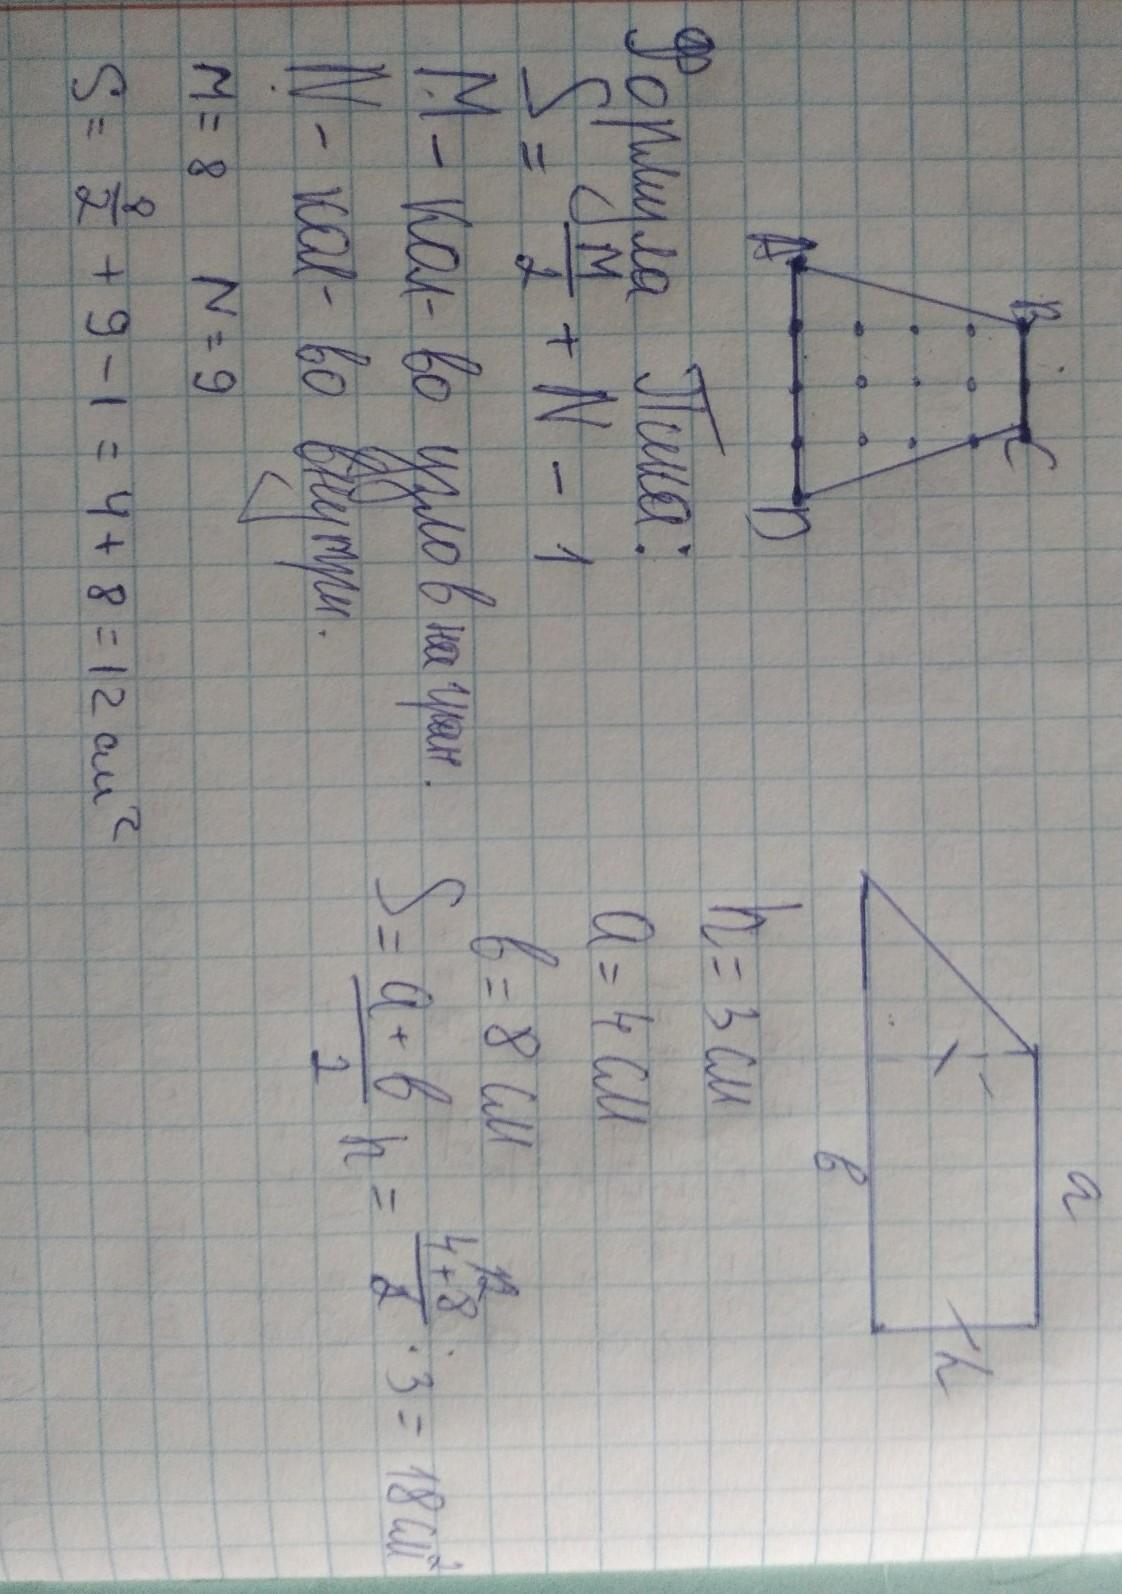 A B C D
Формула Пика:
S = M/2 + N - 1
M - кол-во узлов на гран.
N - кол-во внутри.
M = 8 N = 9
S = 8/2 + 9 - 1 = 4 + 8 = 12 см²
a
в
h
h = 3 см
a = 4 см
в = 8 см
S = a + в/2 h = 4 + 8/2 · 3 = 18 см²
12